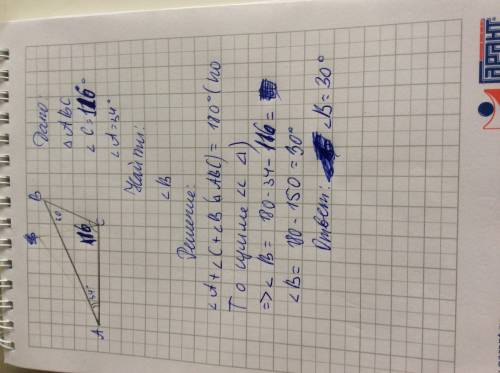 Дано:
△ABC
∠C=116°
∠A=34°
Найти:
∠B
Решение:
∠A+∠C+∠B (△ABC) = 180° (по
Т о сумме ∠∠ △)
=>∠B = 180-34-116=
∠B= 180-150=30°
Ответ: ∠B=30°
B
116
C
34°
A
ГАРАНТ